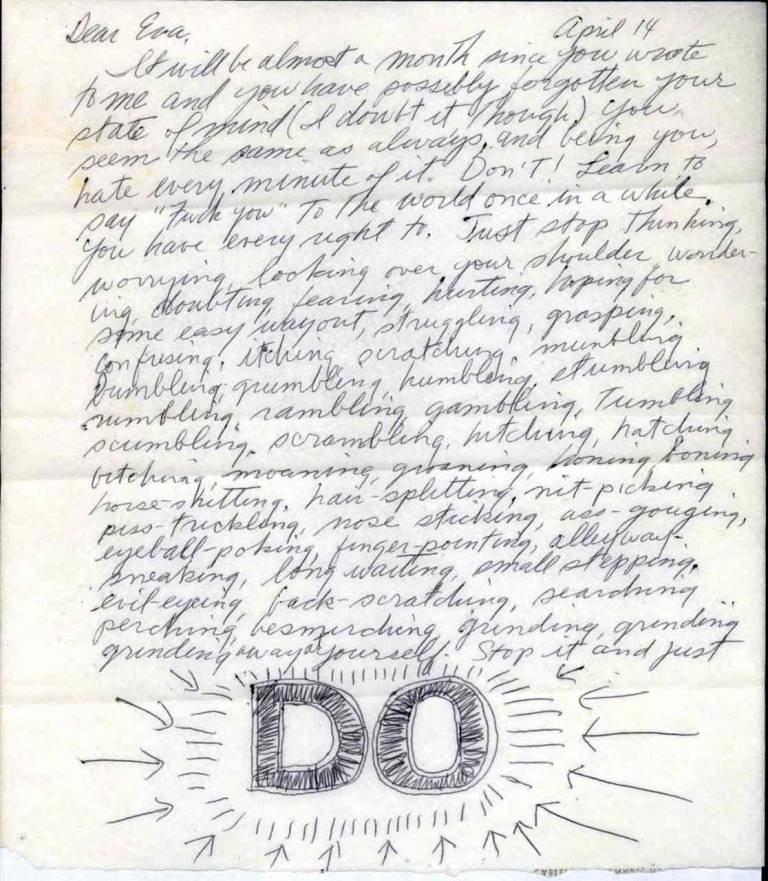 Dear Eva, April 14
It will be almost a month since you wrote
to me and you have possibly forgotten your
state of mind (I doubt it though). You
seem the same as always, and being you,
hate every minute of it. Don't! Learn to
say "Fuck You" to the world once in a while.
You have every right to. Just stop thinking,
worrying, looking over your shoulder, wonder-
ing, doubting, fearing, hurting, hoping for
some easy way out, struggling, grasping,
confusing, itching, scratching, mumbling
bumbling, grumbling, humbling, stumbling
rumbling, rambling, gambling, tumbling
scumbling, scrambling, hitching, hatching
bitching, moaning, groaning, honing, boning
horse-shitting, hair-splitting, nit-picking
piss-trickling, nose sticking, ass-gouging,
eyeball-poking, finger-pointing, alleyway-
sneaking, long waiting, small stepping,
evil-eyeing, back-scratching, searching
perching, besmirching, grinding, grinding
grinding away at yourself. Stop it and just
DO